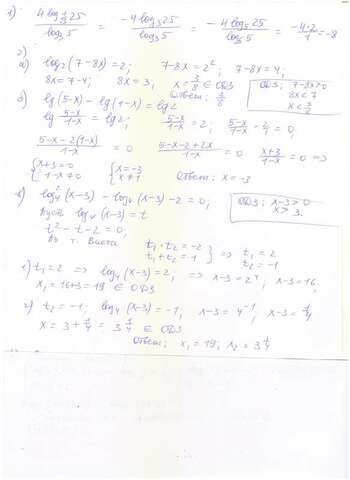 1) 4 log_{1/3} 25 / log_3 5 = -4 log_3 25 / log_3 5 = - 4 log_5 25 / log_5 5 = -4·2 / 1 = -8
2)
а) log_2 (7-8x) = 2; 7-8x = 2²; 7-8x = 4;
8x = 7-4; 8x = 3; x = 3/8 ∈ ОДЗ
Ответ: 3/8
ОДЗ: 7-8x>0
8x < 7
x < 7/8
б) lg (5-x) - lg (1-x) = lg 2
lg (5-x)/(1-x) = lg 2; (5-x)/(1-x) = 2; (5-x)/(1-x) - 2/1 = 0;
(5-x-2(1-x))/(1-x) = 0 (5-x-2+2x)/(1-x) = 0 (x+3)/(1-x) = 0 =>
{ x+3=0 { x=-3
{ 1-x≠0 { x≠1 Ответ: x = -3
в) log²_4 (x-3) - log_4 (x-3) - 2 = 0;
ОДЗ: x-3>0
x > 3.
Пусть log_4 (x-3) = t
t² - t - 2 = 0;
По т. Виета t_1 · t_2 = -2 t_1 + t_2 = 1 } => t_1 = 2 t_2 = -1
1) t_1 = 2 => log_4 (x-3) = 2; => x-3 = 2⁴; x-3 = 16,
x_1 = 16+3 = 19 ∈ ОДЗ
2) t_2 = -1; log_4 (x-3) = -1, x-3 = 4⁻¹; x-3 = 1/4
x = 3 + 1/4 = 3 1/4 ∈ ОДЗ
Ответ: x_1 = 19, x_2 = 3 1/4